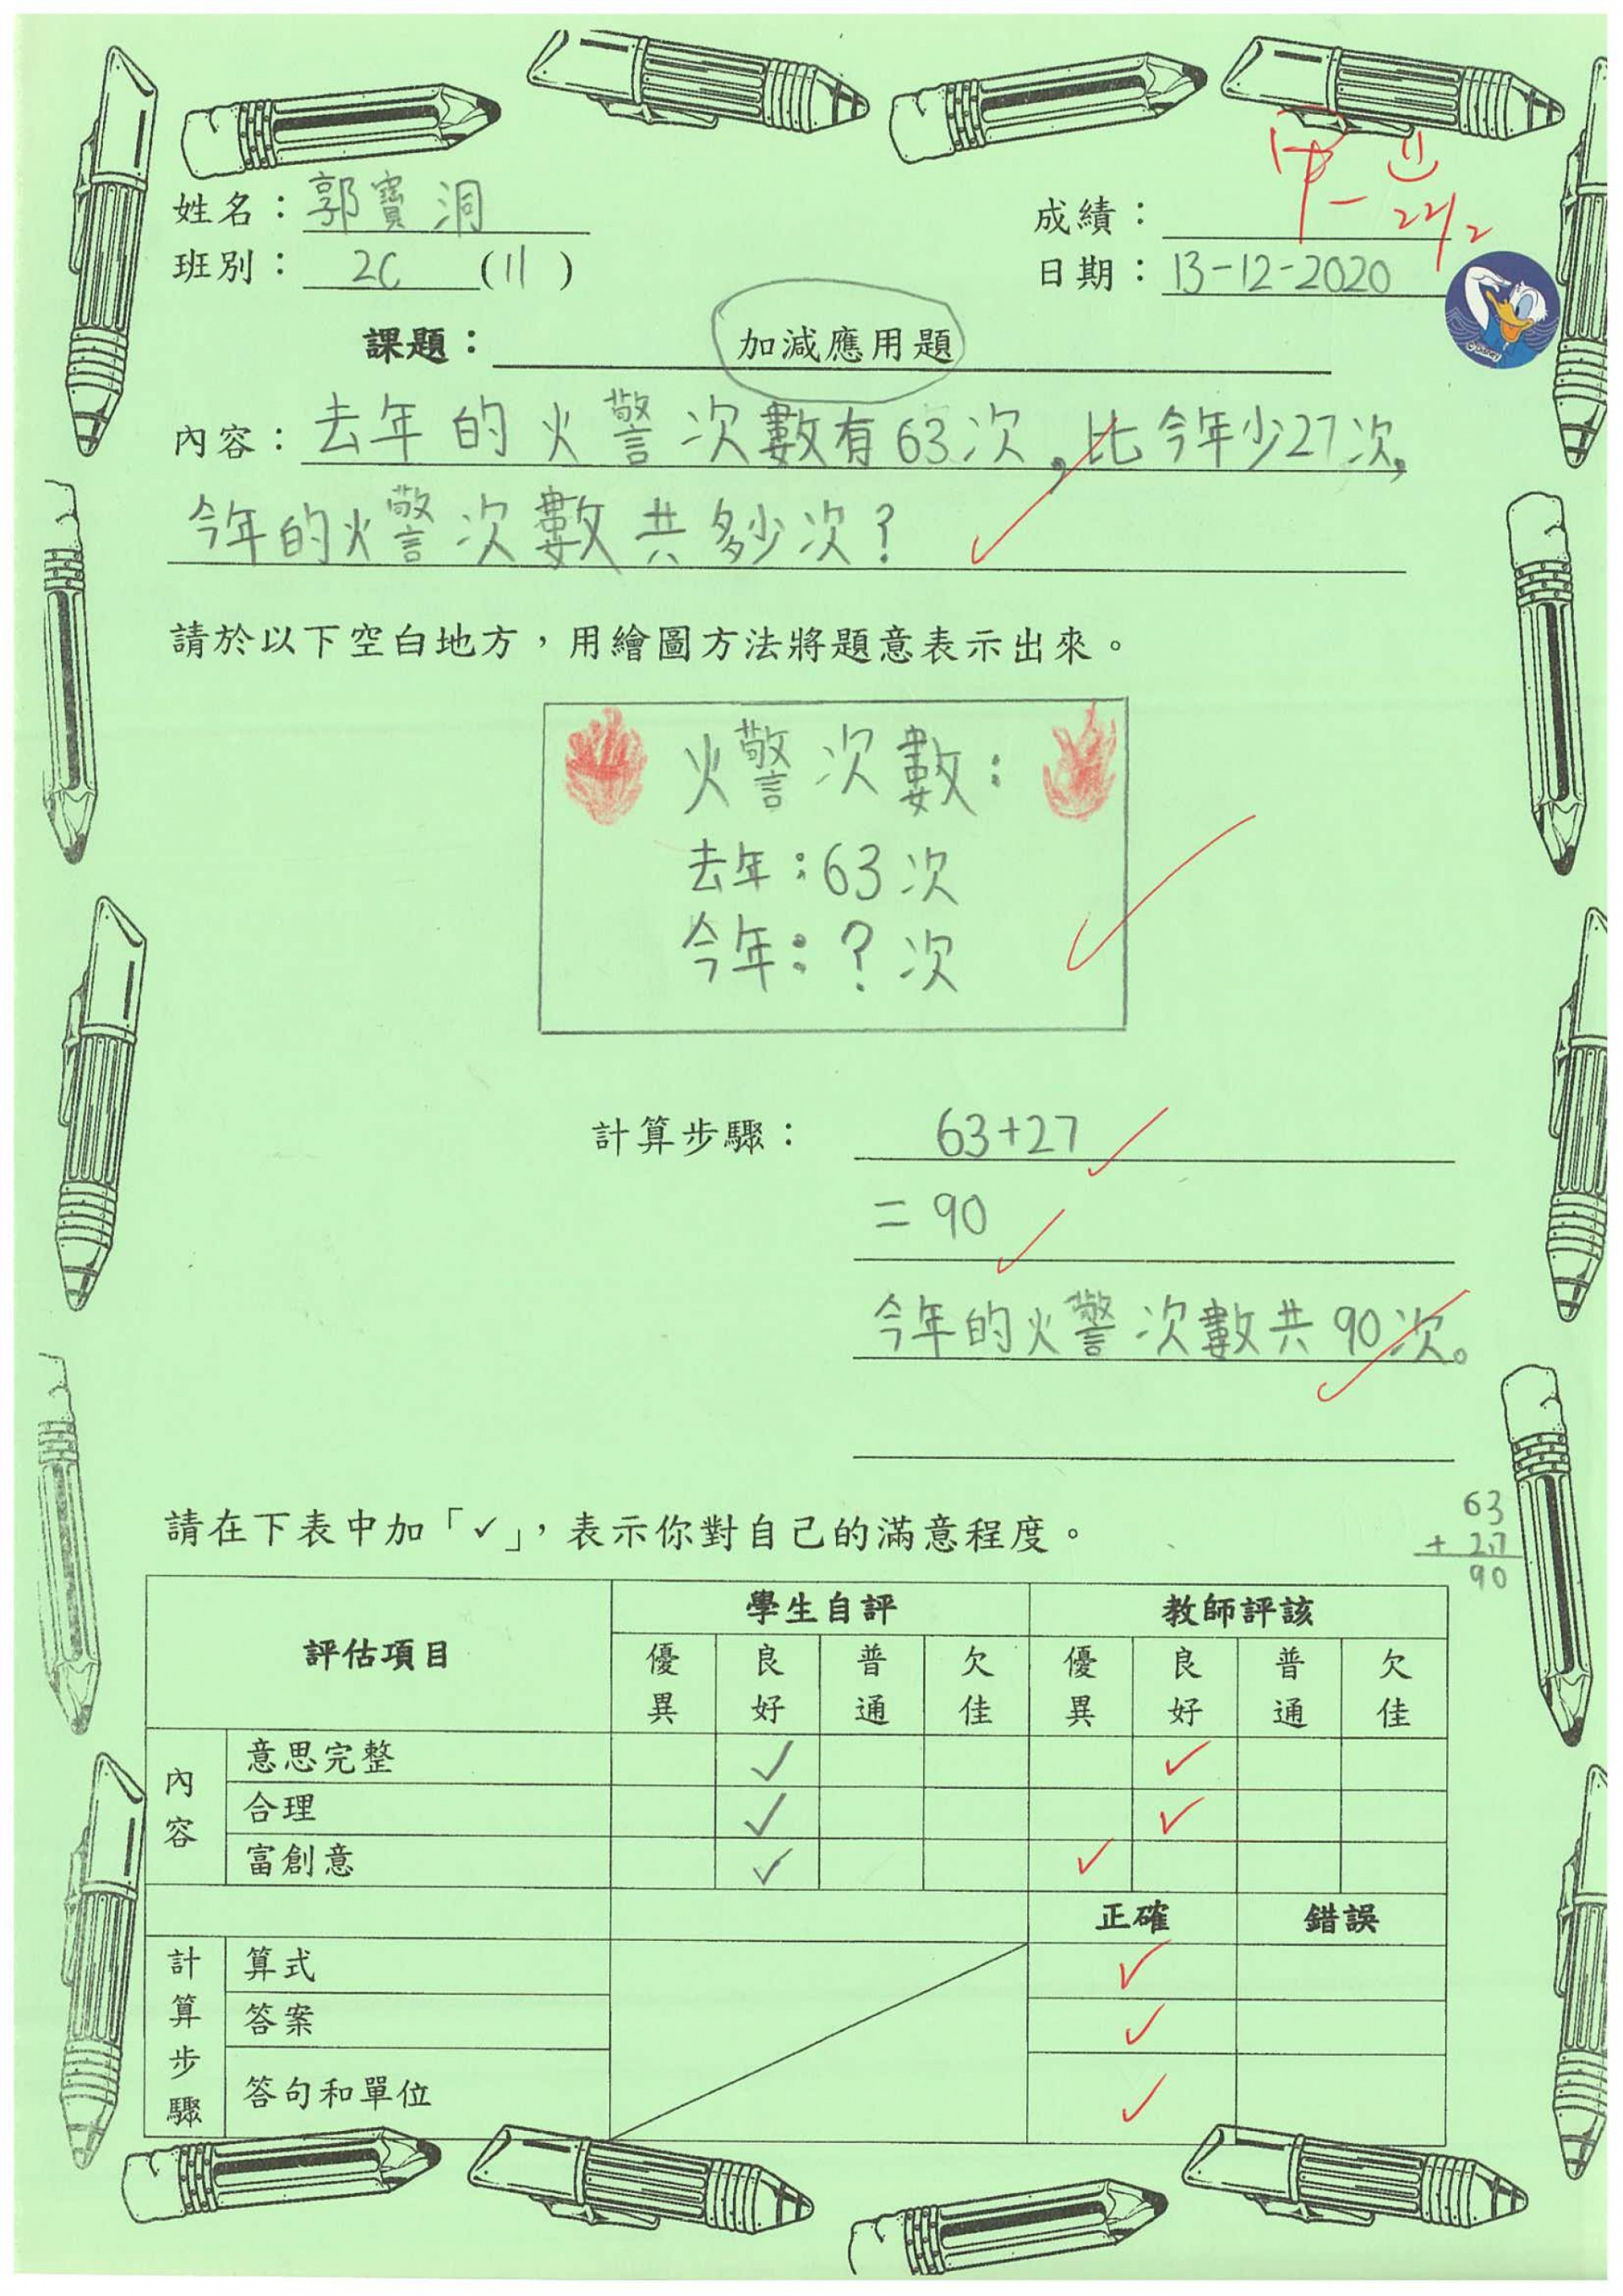 姓名：郭寳洞
成績：甲-
22/2
班別：2C (11)
日期：13-12-2020
© Disney
課題：加減應用題
內容：去年的火警次數有63次，比今年少27次，
今年的火警次數共多少次？
請於以下空白地方，用繪圖方法將題意表示出來。
火警次數：
去年：63次
今年：？次
計算步驟：63+27
=90
今年的火警次數共90次。
63
+ 27
90
請在下表中加「✓」，表示你對自己的滿意程度。
評估項目 學生自評 教師評該
優異 良好 普通 欠佳 優異 良好 普通 欠佳
內容
意思完整 ✓ ✓
合理 ✓ ✓
富創意 ✓ ✓
正確 錯誤
計算步驟
算式 ✓
答案 ✓
答句和單位 ✓